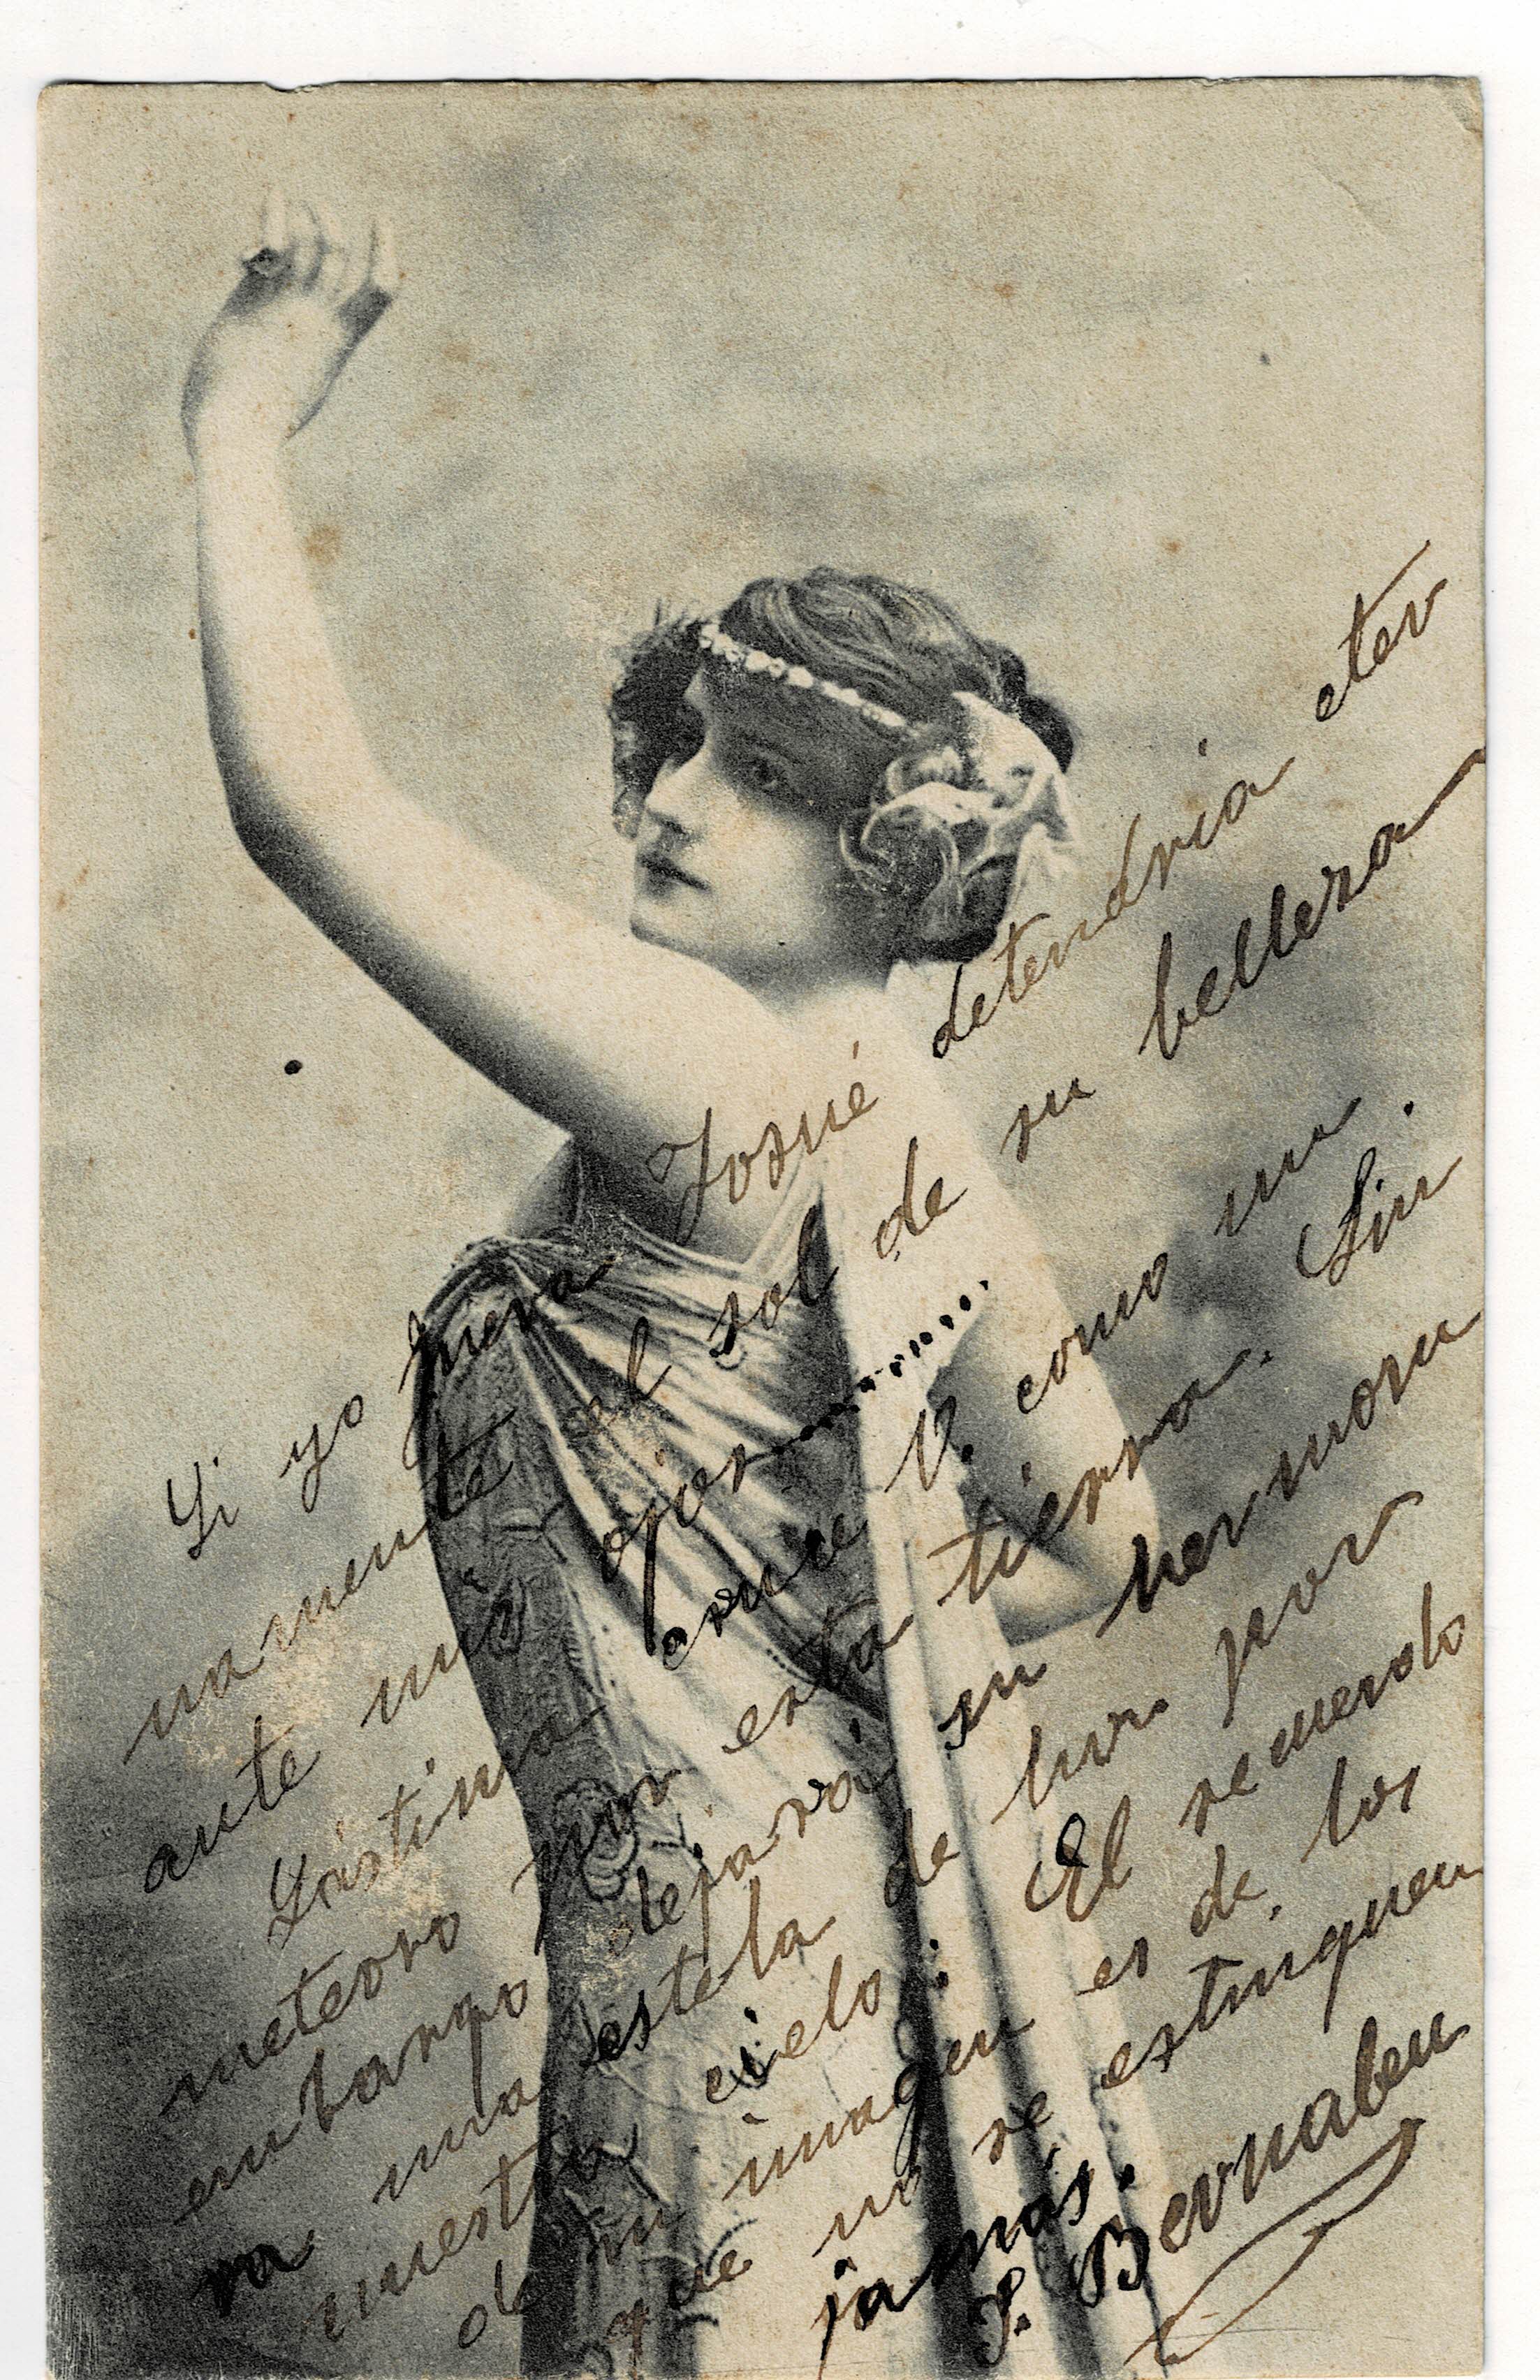 Si yo fuera Josué detendria eter
namente el sol de su belleza
ante mis ojos..............
Lástima cruce V. como un
meteoro por esta tierra. Sin
embargo dejará su hermosu
ra una estela de luz por
nuestro cielo: El recuerdo
de su imagen es de los
que no se estinguen
jamás.
J. Bernabeu